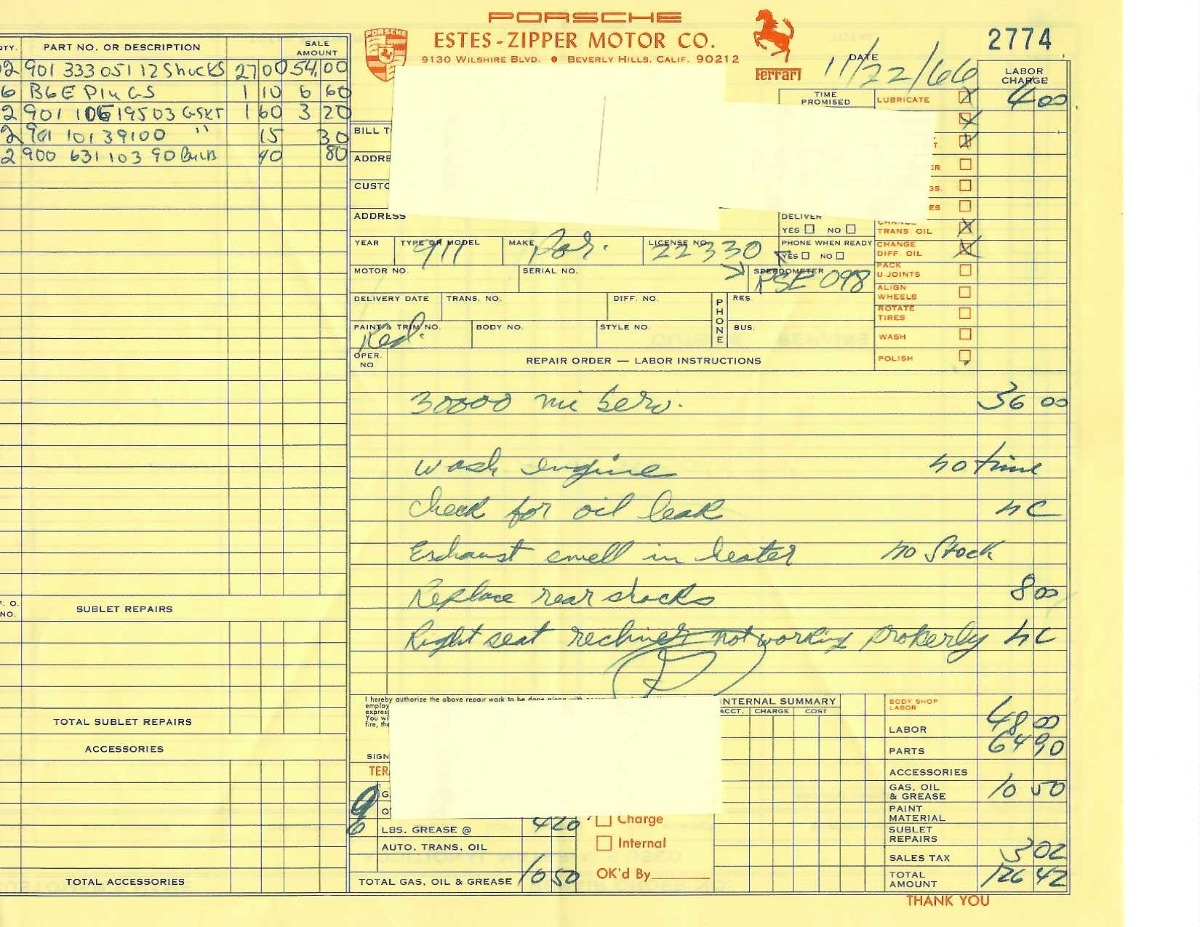 PORSCHE
ESTES-ZIPPER MOTOR CO.
9130 WILSHIRE BLVD. • BEVERLY HILLS, CALIF. 90212
PORSCHE
Ferrari
2774
DATE 11/22/66
QTY. PART NO. OR DESCRIPTION SALE AMOUNT
2 901 333 051 12 Shocks 27 00 54 00
6 B6E PluGS 1 10 6 60
2 901 106 195 03 GSKT 1 60 3 20
2 901 101 39100 " 15 30
2 900 631 103 90 Bulb 40 80
SUBLET REPAIRS
TOTAL SUBLET REPAIRS
ACCESSORIES
TOTAL ACCESSORIES
TIME PROMISED
LABOR CHARGE
LUBRICATE X 4 00
BILL T
ADDRE
CUSTO
ADDRESS
DELIVER
YES NO
CHANGE TRANS. OIL X
PHONE WHEN READY
YES NO
CHANGE DIFF. OIL X
PACK U-JOINTS
ALIGN WHEELS
ROTATE TIRES
WASH
POLISH
YEAR TYPE OR MODEL 911 MAKE Por. LICENSE NO. 22330
MOTOR NO. SERIAL NO. SPEEDOMETER RSE 098
DELIVERY DATE TRANS. NO. DIFF. NO. PHONE RES.
PAINT & TRIM NO. Red. BODY NO. STYLE NO. BUS.
OPER. NO. REPAIR ORDER — LABOR INSTRUCTIONS
30000 mi Serv. 36 00
wash engine no time
Check for oil leak NC
Exhaust smell in heater no Stock
Replace rear shocks 8 00
Right seat recliner not working properly NC
I hereby authorize the above repair work to be done along with
INTERNAL SUMMARY
ACCT. CHARGE COST
BODY SHOP LABOR
LABOR 48 00
PARTS 64 90
ACCESSORIES
GAS, OIL & GREASE 10 50
PAINT MATERIAL
SUBLET REPAIRS
SALES TAX 3 02
TOTAL AMOUNT 126 42
SIGN
TER
LBS. GREASE @ 4 20
AUTO. TRANS. OIL
TOTAL GAS, OIL & GREASE 10 50
Charge
Internal
OK'd By
THANK YOU